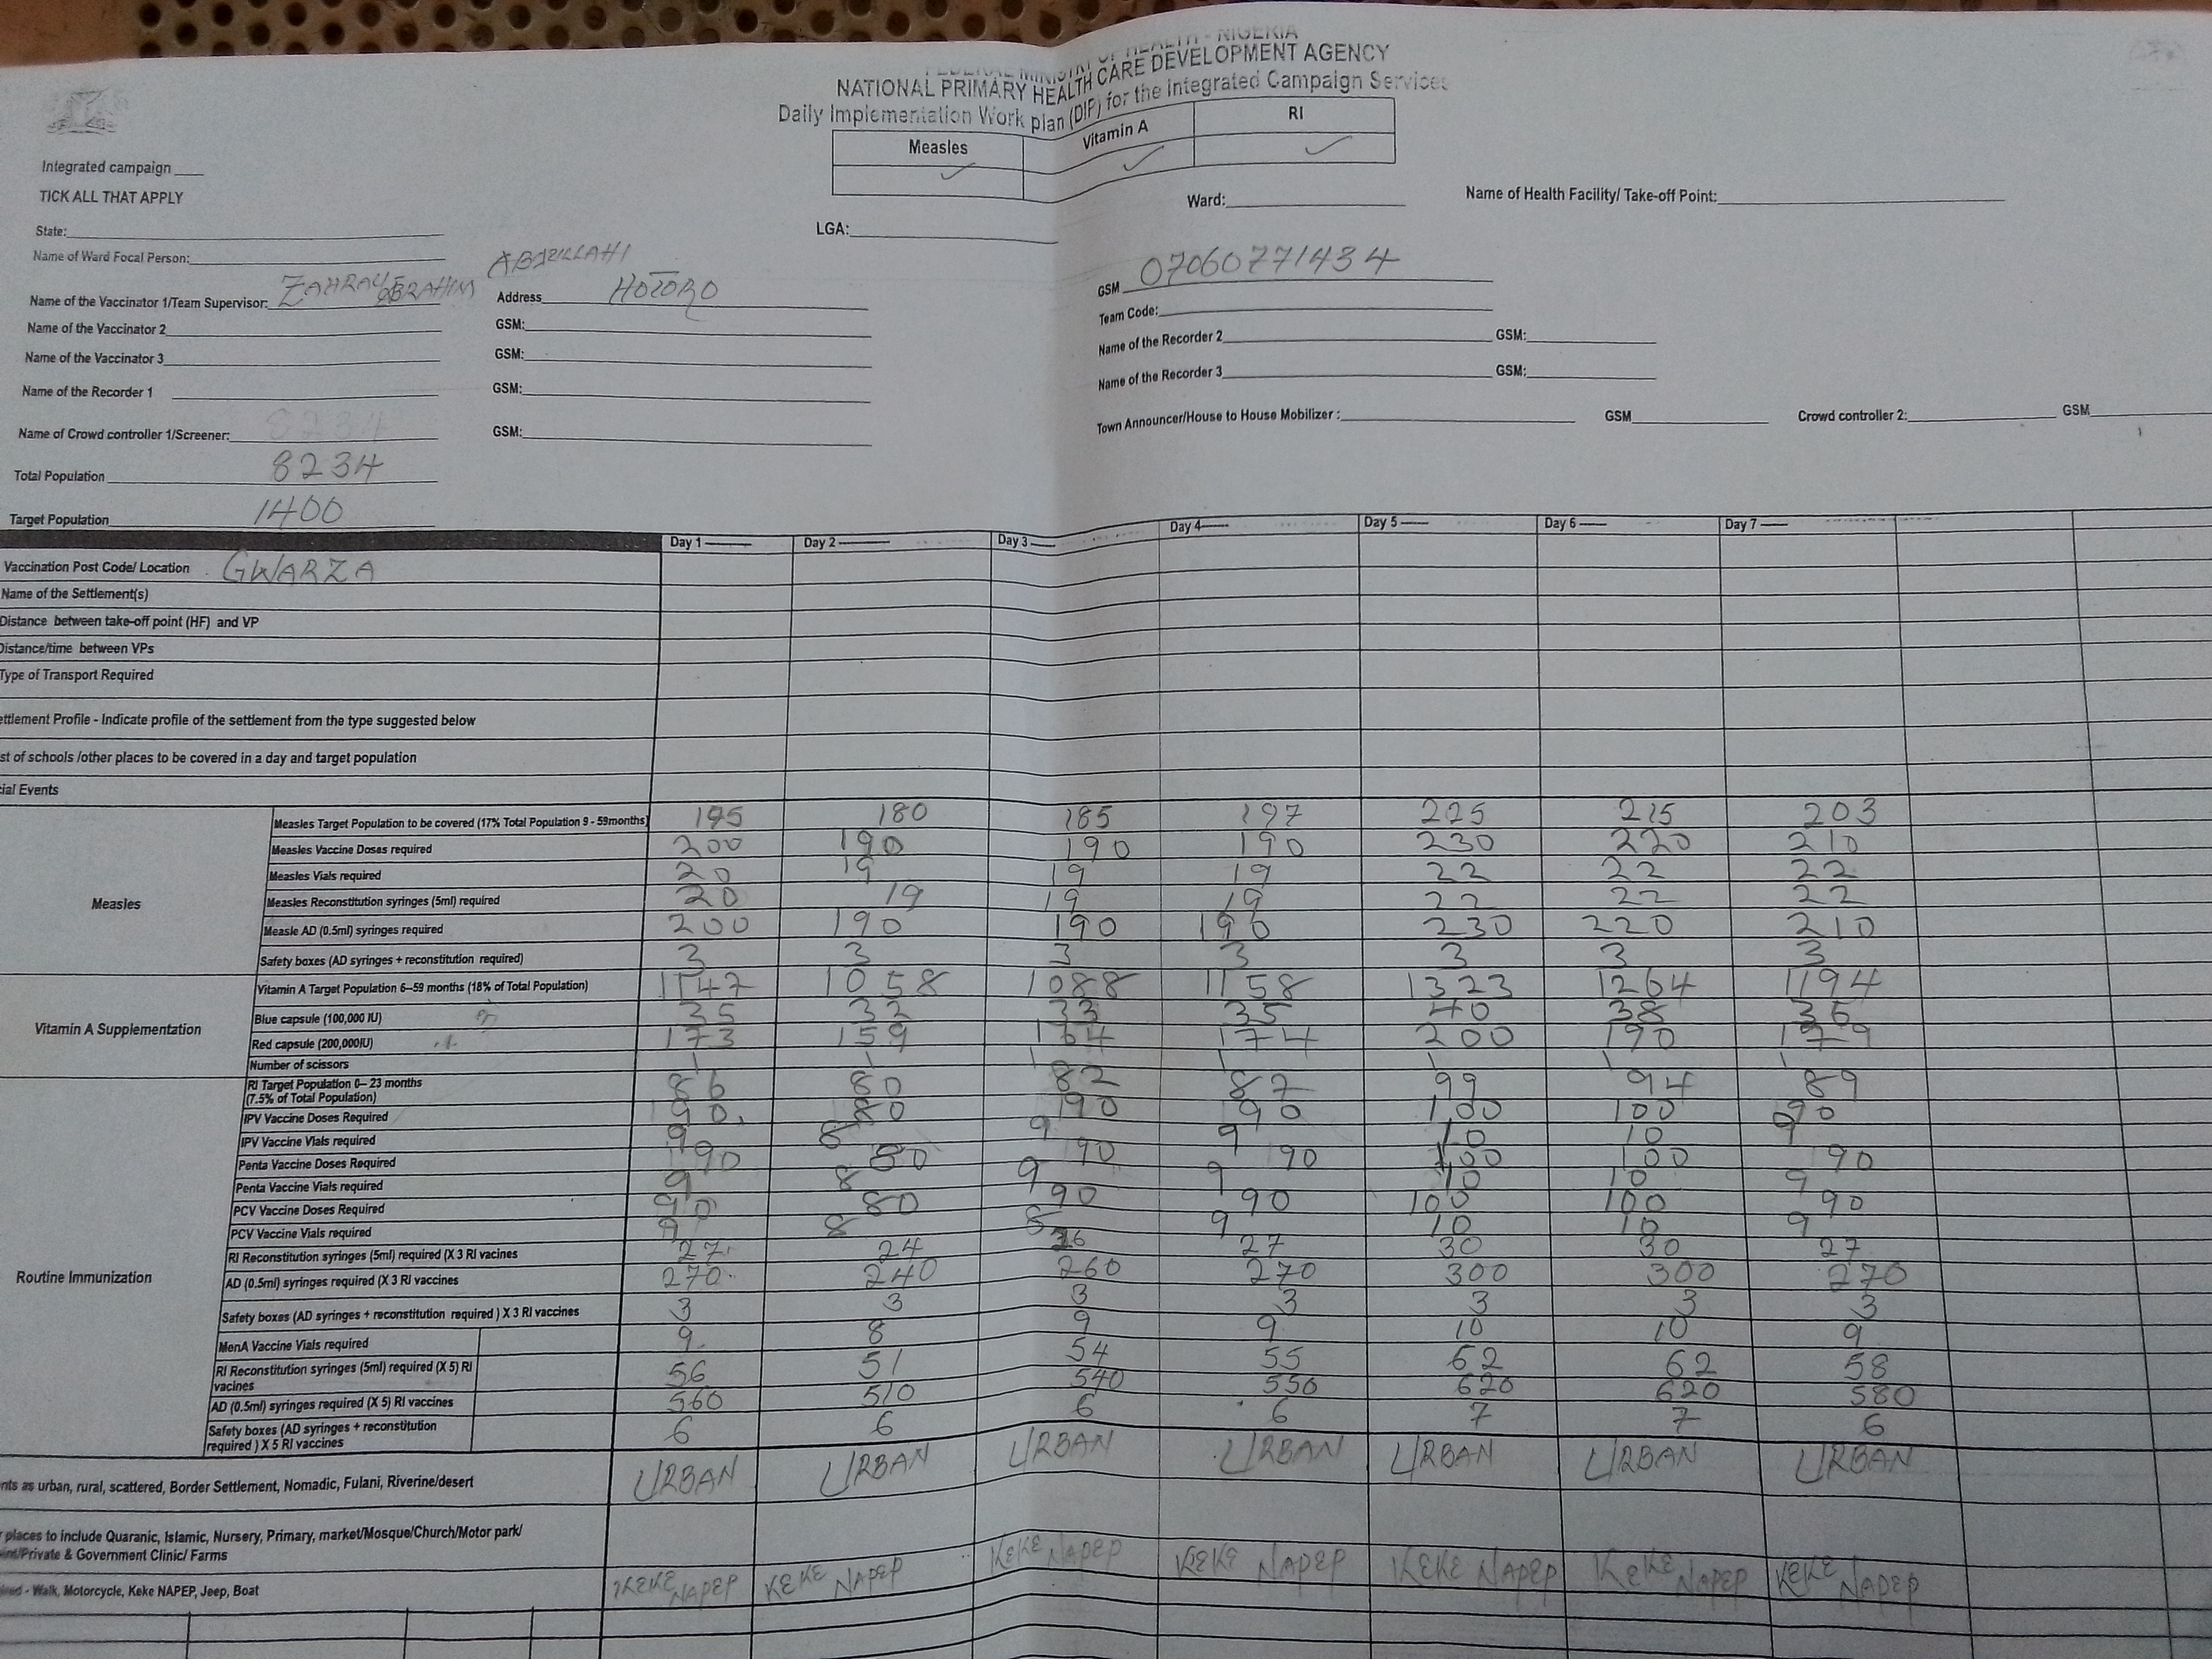 FEDERAL MINISTRY OF HEALTH - NIGERIA
NATIONAL PRIMARY HEALTH CARE DEVELOPMENT AGENCY
Daily Implementation Work plan (DIP) for the Integrated Campaign Services
Measles Vitamin A RI
✓ ✓ ✓
Integrated campaign
TICK ALL THAT APPLY
State: LGA: Ward: Name of Health Facility/ Take-off Point:
Name of Ward Focal Person:
Name of the Vaccinator 1/Team Supervisor: Address HOTORO GSM 07060771434
Name of the Vaccinator 2 GSM: Team Code:
Name of the Vaccinator 3 GSM: Name of the Recorder 2 GSM:
Name of the Recorder 1 GSM: Name of the Recorder 3 GSM:
Name of Crowd controller 1/Screener: 8234 GSM: Town Announcer/House to House Mobilizer : GSM Crowd controller 2: GSM
Total Population 8234
Target Population 1400
Day 1 Day 2 Day 3 Day 4 Day 5 Day 6 Day 7
Vaccination Post Code/ Location GWARZA
Name of the Settlement(s)
Distance between take-off point (HF) and VP
Distance/time between VPs
Type of Transport Required
ettlement Profile - Indicate profile of the settlement from the type suggested below
st of schools /other places to be covered in a day and target population
ial Events
Measles
Measles Target Population to be covered (17% Total Population 9 - 59months) 195 180 185 197 225 215 203
Measles Vaccine Doses required 200 190 190 190 230 220 210
Measles Vials required 20 19 19 19 22 22 22
Measles Reconstitution syringes (5ml) required 20 19 19 19 22 22 22
Measle AD (0.5ml) syringes required 200 190 190 190 230 220 210
Safety boxes (AD syringes + reconstitution required) 3 3 3 3 3 3 3
Vitamin A Supplementation
Vitamin A Target Population 6–59 months (18% of Total Population) 1147 1058 1088 1158 1323 1264 1194
Blue capsule (100,000 IU) 35 32 33 35 40 38 36
Red capsule (200,000IU) 173 159 164 174 200 190 179
Number of scissors 1 1 1 1 1 1 1
Routine Immunization
RI Target Population 0– 23 months
(7.5% of Total Population) 86 80 82 87 99 94 89
IPV Vaccine Doses Required 90 80 90 90 100 100 90
IPV Vaccine Vials required 9 8 9 9 10 10 9
Penta Vaccine Doses Required 90 80 90 90 100 100 90
Penta Vaccine Vials required 9 8 9 9 10 10 9
PCV Vaccine Doses Required 90 80 90 90 100 100 90
PCV Vaccine Vials required 9 8 8 9 10 10 9
RI Reconstitution syringes (5ml) required (X 3 RI vacines 27 24 26 27 30 30 27
AD (0.5ml) syringes required (X 3 RI vaccines 270 240 260 270 300 300 270
Safety boxes (AD syringes + reconstitution required ) X 3 RI vaccines 3 3 3 3 3 3 3
MenA Vaccine Vials required 9 8 9 9 10 10 9
RI Reconstitution syringes (5ml) required (X 5) RI
vacines 56 51 54 55 62 62 58
AD (0.5ml) syringes required (X 5) RI vaccines 560 510 540 550 620 620 580
Safety boxes (AD syringes + reconstitution
required ) X 5 RI vaccines 6 6 6 6 7 7 6
nts as urban, rural, scattered, Border Settlement, Nomadic, Fulani, Riverine/desert URBAN URBAN URBAN URBAN URBAN URBAN URBAN
places to include Quaranic, Islamic, Nursery, Primary, market/Mosque/Church/Motor park/
int/Private & Government Clinic/ Farms
ired - Walk, Motorcycle, Keke NAPEP, Jeep, Boat KEKE NAPEP KEKE NAPEP KEKE NAPEP KEKE NAPEP KEKE NAPEP KEKE NAPEP KEKE NAPEP